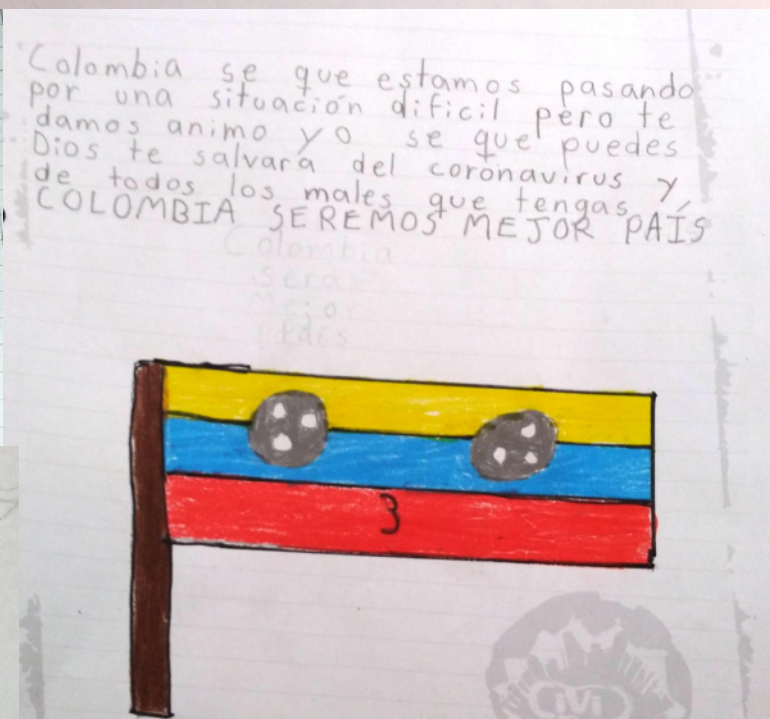 Colombia se que estamos pasando
por una situación dificil pero te
damos animo yo se que puedes
Dios te salvara del coronavirus y
de todos los males que tengas
COLOMBIA SEREMOS MEJOR PAÍS
Colombia
seras
Mejor
Pais
3
CiVi